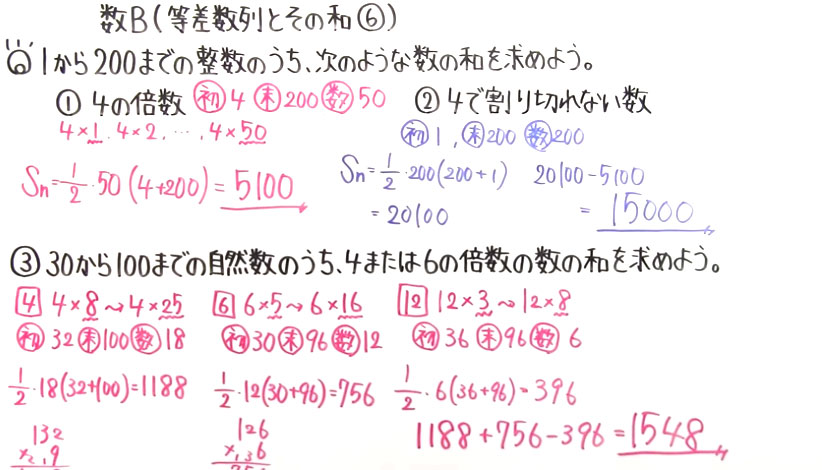 数B(等差数列とその和⑥)
Q 1から200までの整数のうち、次のような数の和を求めよう。
① 4の倍数 初 4 末 200 数 50
4×1, 4×2, ‥‥, 4×50
Sn=1/2・50(4+200)=5100
② 4で割り切れない数
初 1, 末 200 数 200
Sn=1/2・200(200+1)
=20100
20100-5100
=15000
③ 30から100までの自然数のうち、4または6の倍数の数の和を求めよう。
4 4×8〜4×25
初 32 末 100 数 18
1/2・18(32+100)=1188
132
× 9
6 6×5〜6×16
初 30 末 96 数 12
1/2・12(30+96)=756
126
× 6
12 12×3〜12×8
初 36 末 96 数 6
1/2・6(36+96)=396
1188+756-396=1548